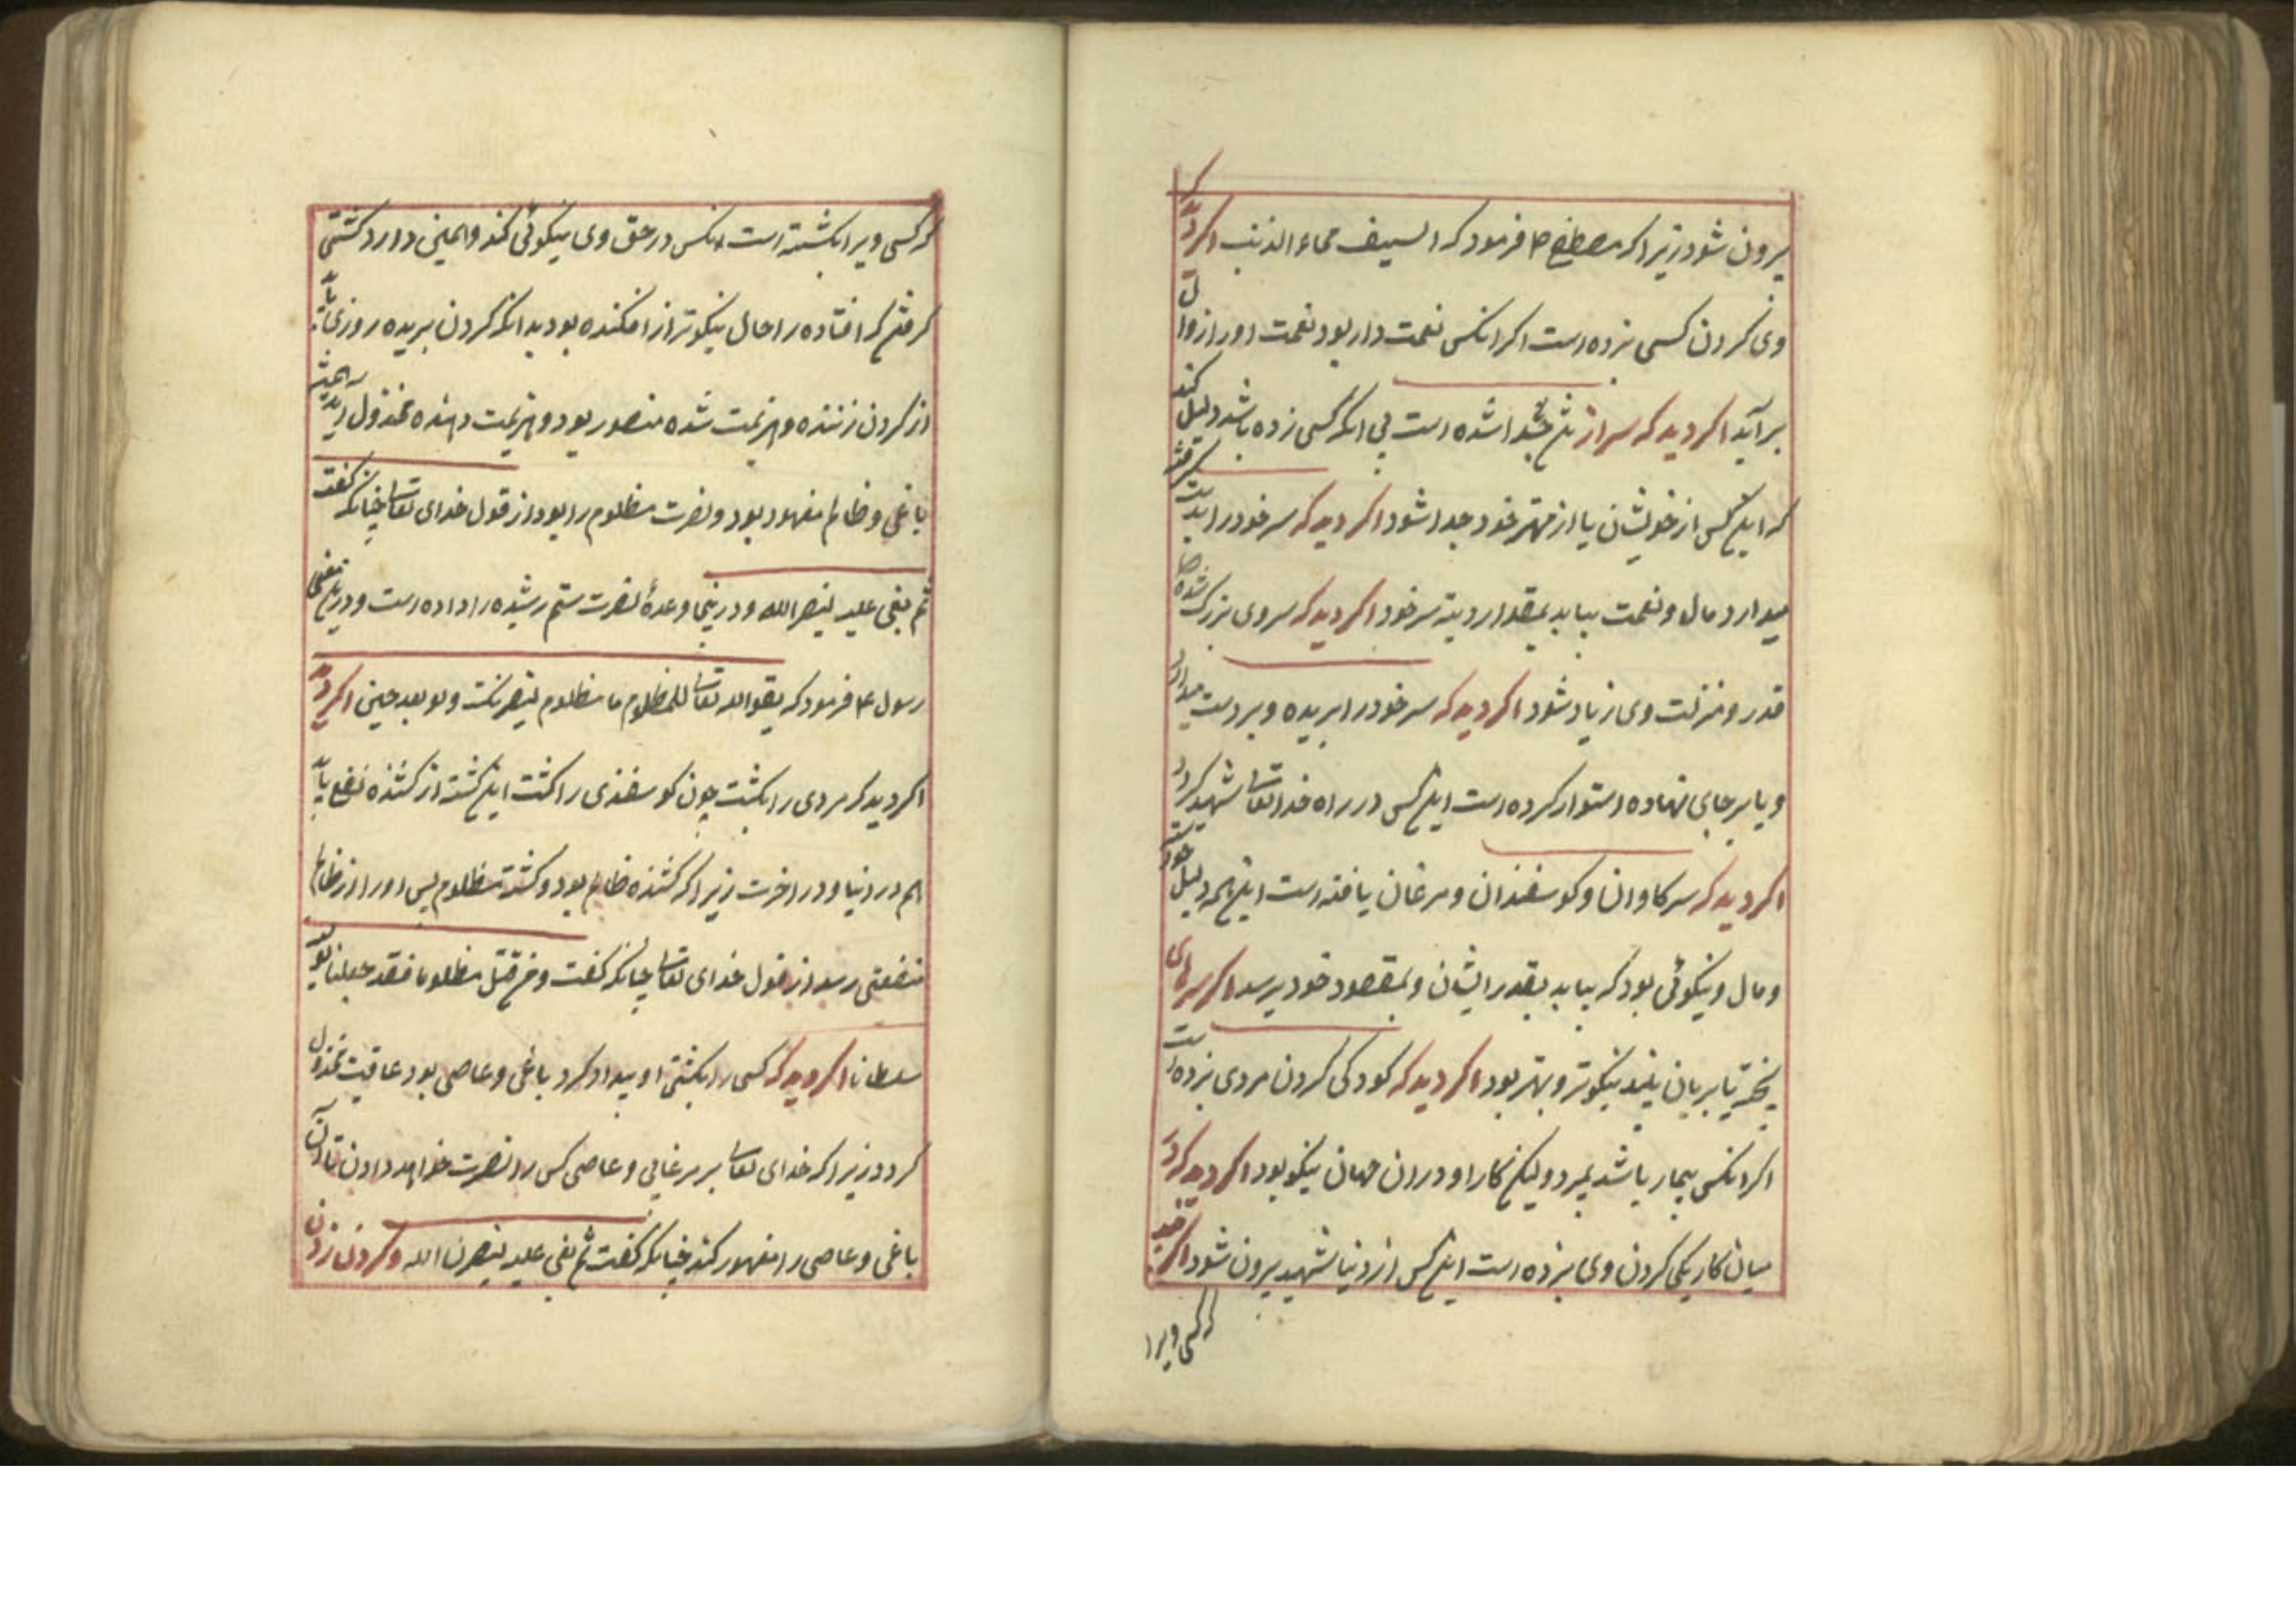 بیرون شود زیرا که مصطفی ص فرمود که السیف محاء الذنب اکر دید که
وی کردن کسی بزده است اکر انکس نعمت دار بود نعمت او را زوال
بر آید اکر دید که سر از تن جدا شده است بی انکه کسی زده باشد دلیل کند
که این کس از خویشان یا از مهتر خود جدا شود اکر دید که سر خود را بدست گرفته
میدارد مال و نعمت بیابد بمقدار دیته سر خود اکر دید که سر وی بزرک شده
قدر و منزلت وی زیاد شود اکر دید که سر خود را بریده و بر دست میدارد
و یا بر جای نهاده استوار کرده است این کس در راه خدا تعالی شهید کردد
اکر دید که سر کاوان و کوسفندان و مرغان یافته است این همه دلیل
و مال و نیکوئی بود که بیابد بقدر ایشان و بمقصود خود برسد اکر سرهای
پخته یا بریان بیند نیکوتر و بهتر بود اکر دید که کودکی کردن مردی بزده است
اکر انکس بیمار باشد بمیرد ولیکن کار او در ان جهان نیکو بود اکر دید که در
میان کار یکی کردن وی بزده است این کس از دنیا شهید بیرون شود اکر دید
که کسی ویرا
که کسی ویرا بکشته است انکس در حق وی نیکوئی کند و ایمنی دارد کشتی
کرفتن که افتاده را حال نیکوتر از افکنده بود بدانکه کردن بریده روزی یابد
از کردن زننده و هزیمت شده منصور بود و هزیمت دهنده مخذول
باغی و ظالم مقهور بود و نصرت مظلوم را بود از قول خدای تعالی چنانکه گفت
ثم بغی علیه لینصرنه الله و درینجا وعدهٔ نصرت ستم رشیده را داده است و درین معنی
رسول ع فرمود که یقول الله تعالی للمظلوم یا مظلوم لینصرنک ولو بعد حین اکر دید
اکر دید که مردی را بکشت چون کوسفندی را کشت این کشته از کشنده نفع یابد
هم در دنیا و در اخرت زیرا که کشنده ظالم بود و کشته مظلوم پس او را از ظالم
منفعتی رسد از قول خدای تعالی چنانکه کفت و من قتل مظلوما فقد جعلنا لولیه
سلطانا اکر دید که کسی را بکشتی او بیداد کرد باغی و عاصی بود عاقبت مخذول
کردد زیرا که خدای تعالی بر مر غالی و عاصی کس را نصرت خواهد دادن تا آن
باغی و عاصی را مقهور کند چنانکه کفت ثم بغی علیه لینصرن الله و کردن زدن